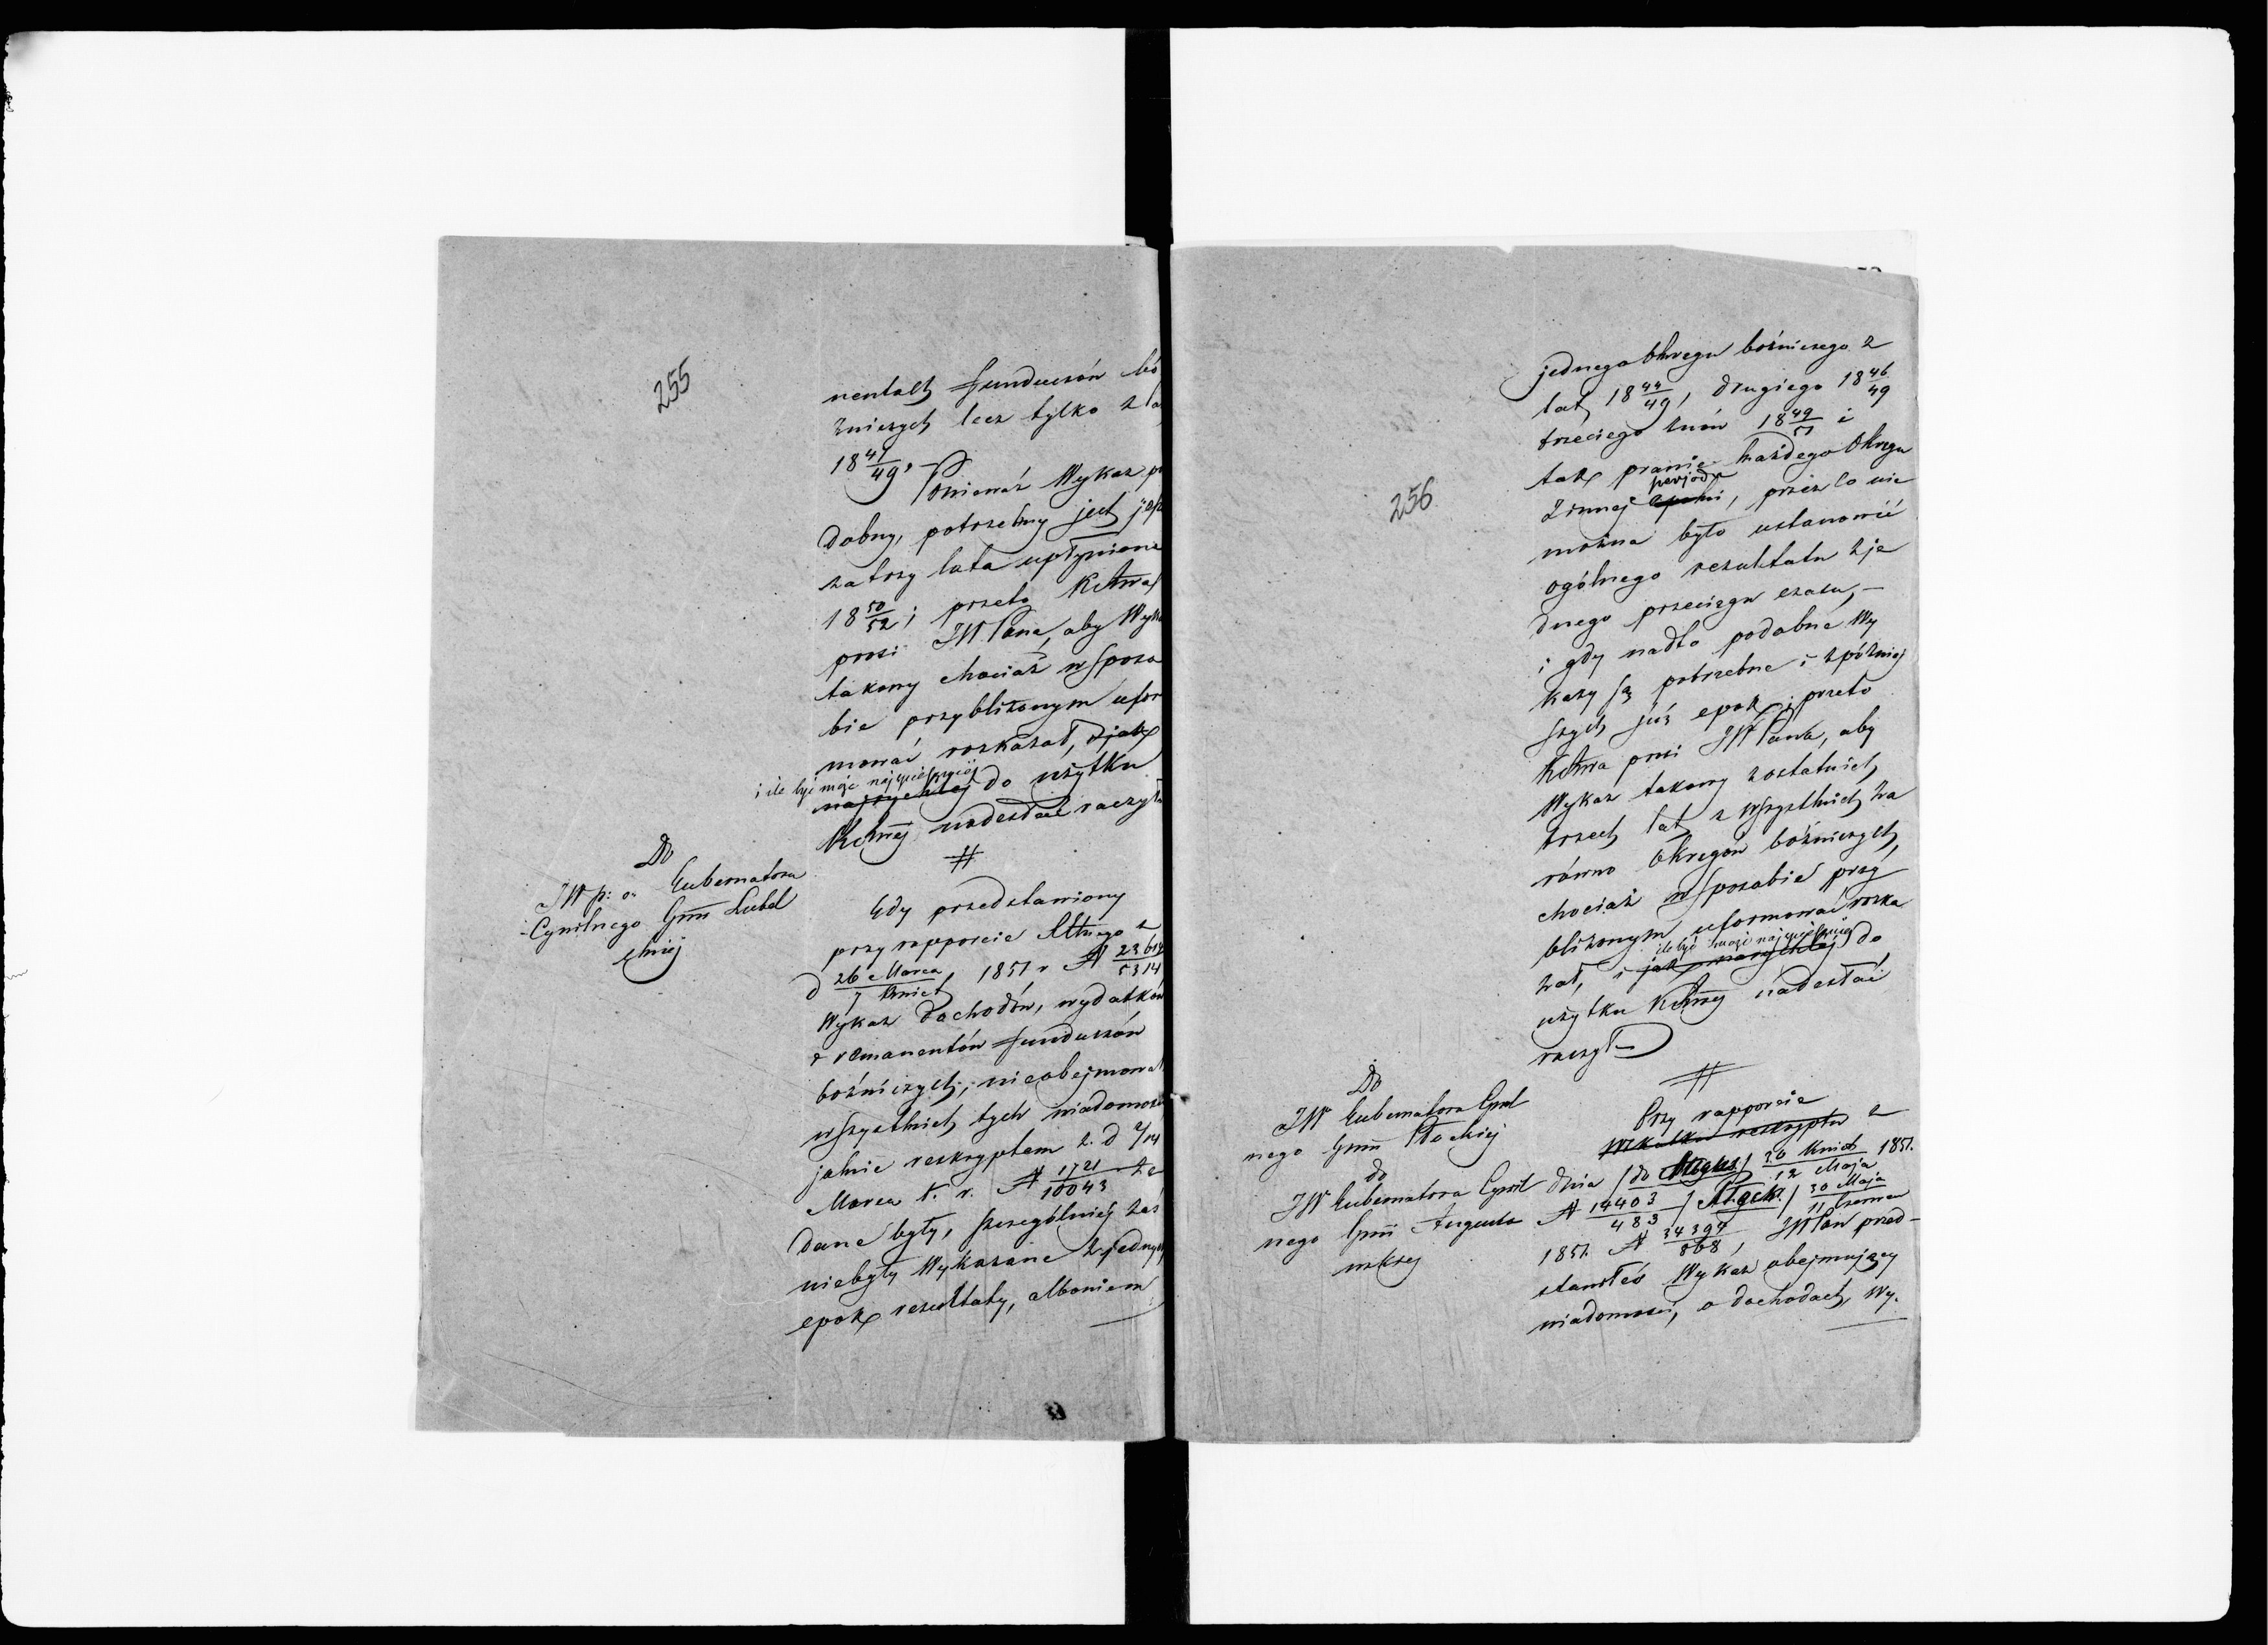 255
nentach funduszów bó
żniczych lecz tylko z la
18 47/49, –
Ponieważ Wykaz po
dobny, potrzebny jest
za trzy lata upłynione
18 50/52; przeto
prosi JW Pana, aby Wyka
takowy chociaż w sposo
bie przybliżonym ufor
mować rozkazał, i jak
i ile być może najspieszniej
najrychlej do użytku
nadesłać raczył
#
Do
JW p: o: Gubernatora
Cywilnego Gnii Lubel
skiej
Gdy przedstawiony
przy rapporcie z
d 26 Marca / 7 Kwiet 1851 r N
Wykaz dochodów, wydatków
i remanentów funduszów
bożniczych, nieobejmował
wszystkich tych wiadomości
jakie reskryptem z d 2/14
Marca t. r. N 1721/10043 żą
dane były, szczególniej zaś
niebyły Wykazane z jednych
epok rezultaty, albowiem
256
jednego Okręgu bożniczego z
lat 18 44/49, drugiego 18 46/49
trzeciego znów 18 49/51 i
tak prawie każdego Okręgu
perjodu
z innej epoki, przez co nie
można było ustanowić
ogólnego rezultatu z je
dnego przeciągu czasu, –
i gdy nadto podobne Wy
kazy są potrzebne i z później
szych już epok, przeto
prosi JW Pana, aby
Wykaz takowy z ostatnich
trzech lat z wszystkich za
równo Okręgów bożniczych,
chociaż w sposobie przy
bliżonym uformować rozka
ile być może najspieszniej
zał, i jak najrychlej do
użytku nadesłać
raczył –
#
Do
JW Gubernatora Cywil
nego Gnii Płockiej
do
JW Gubernatora Cywil
nego Gnii Augusto
wskiej
Przy rapporcie
W skutku reskryptu z
dnia / do August / 30 Kwiet / 12 Maja 1851.
N 14403/483 / Płock. / 30 Maja / 11 Czerwca
1851. N 34394/868, JW Pan przed-
stawiłeś Wykaz obejmujący
wiadomości, o dochodach, Wy.